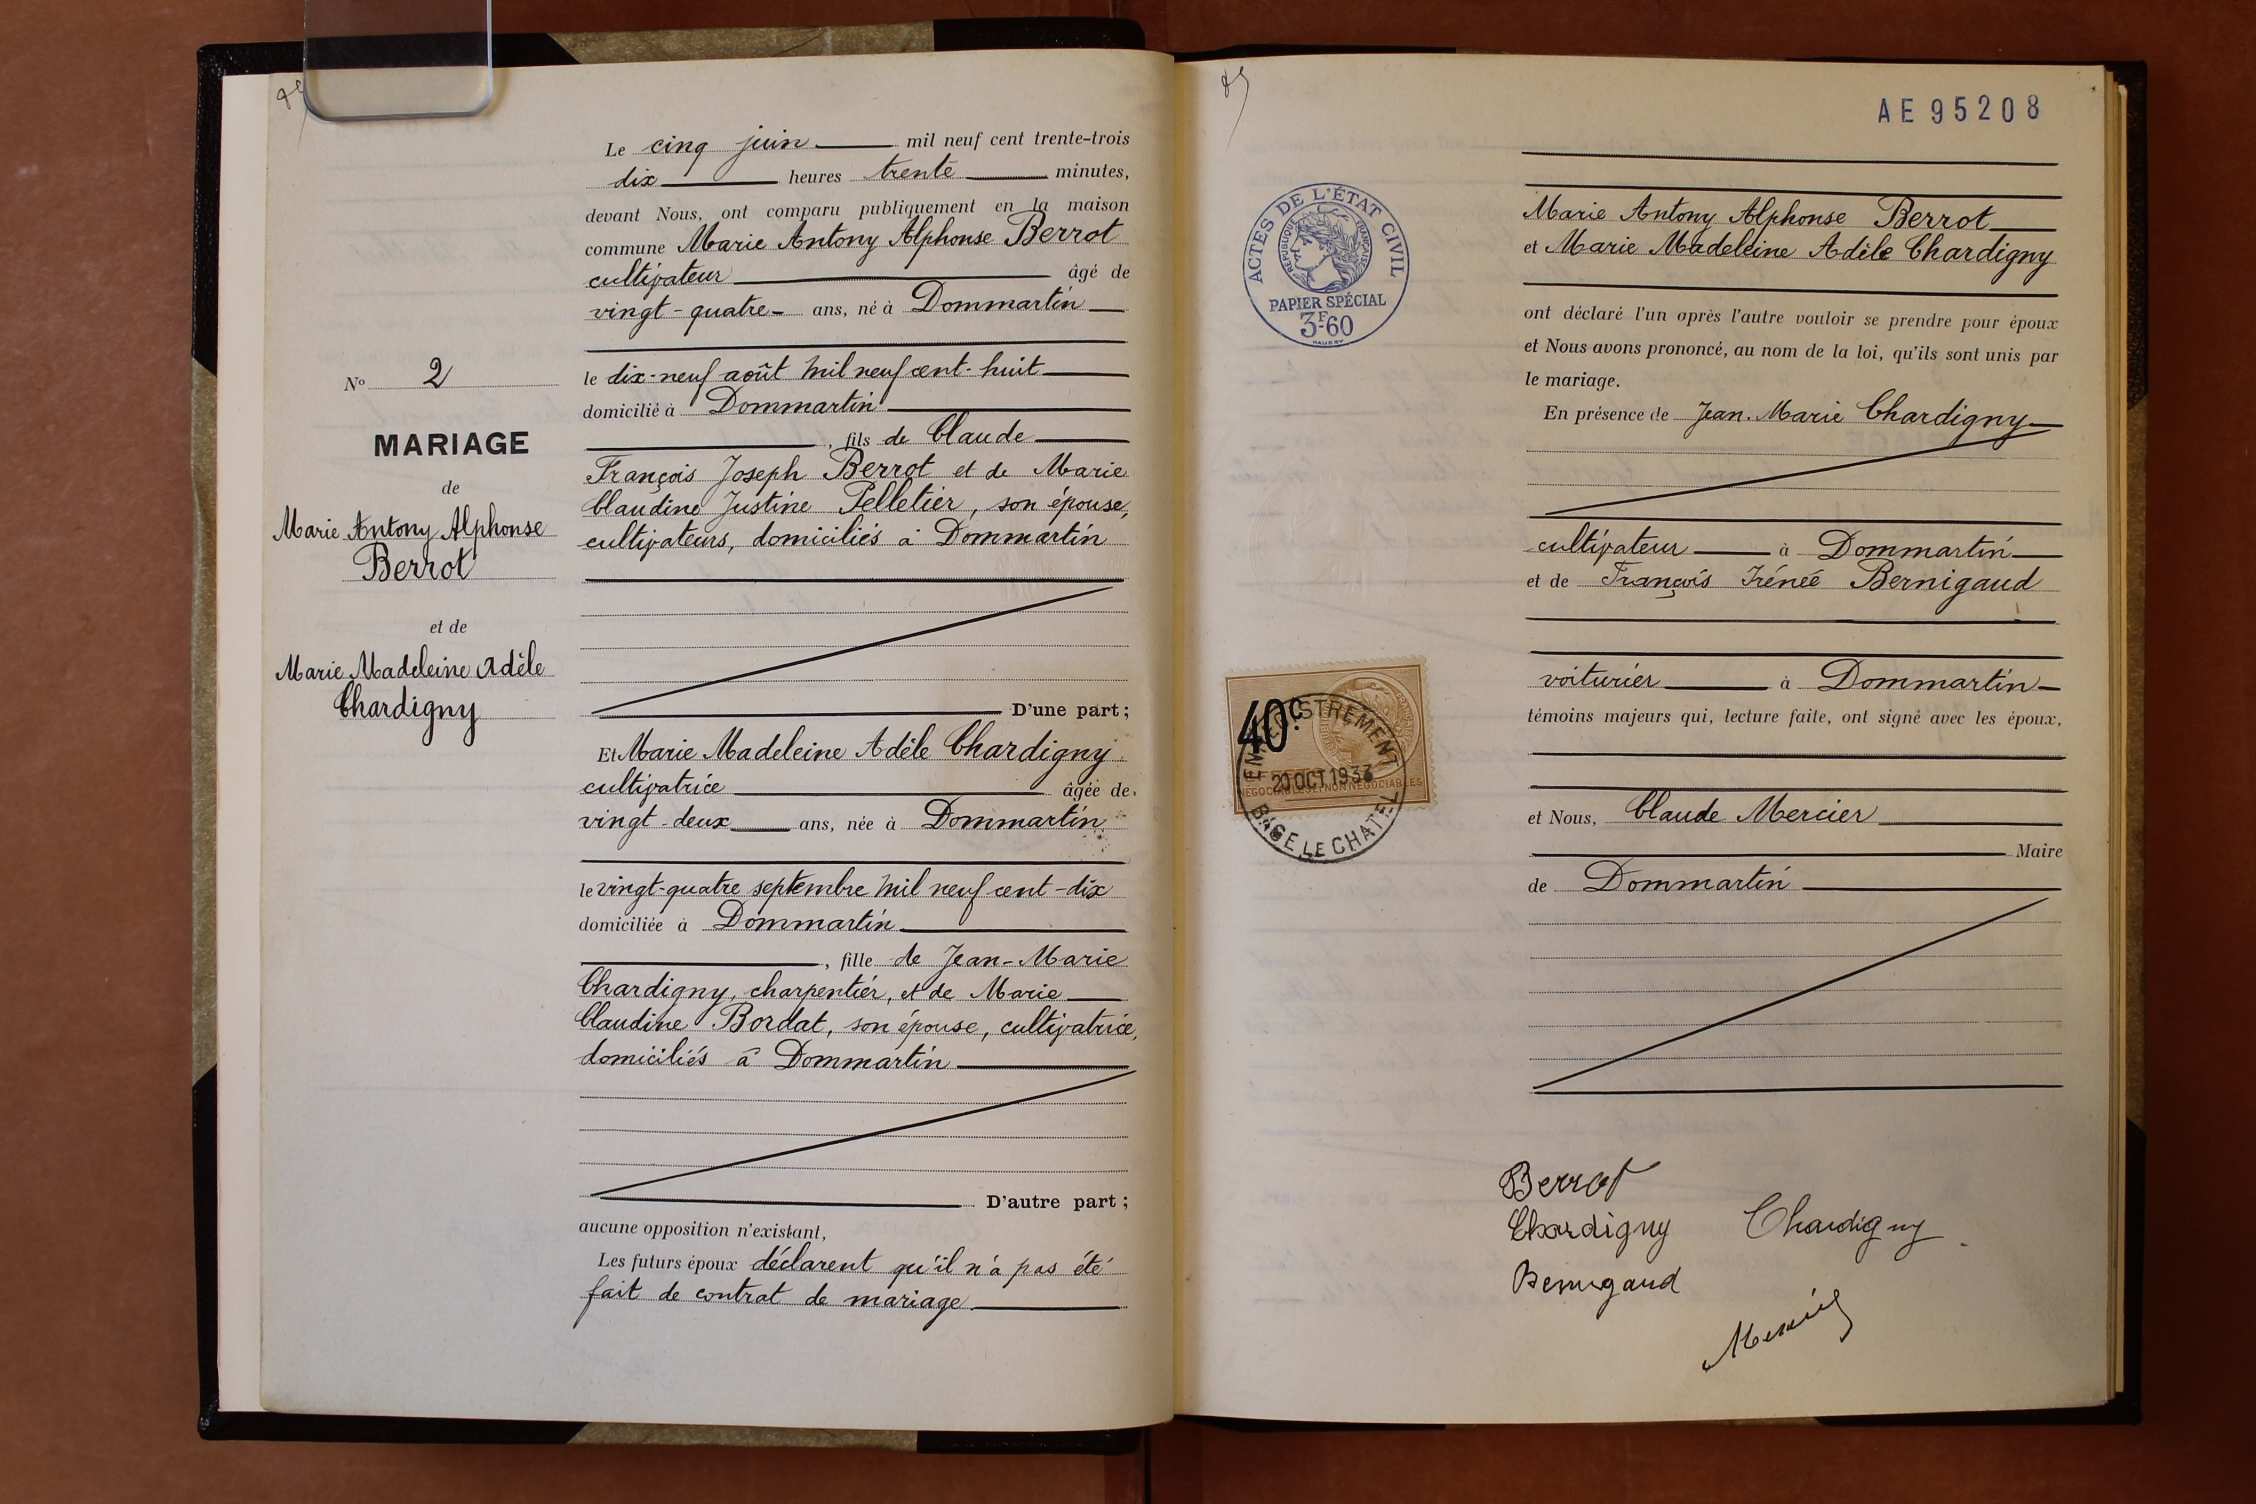 Le cinq juin mil neuf cent trente-trois
dix heures trente minutes,
devant Nous, ont comparu publiquement en la maison
commune Marie Antony Alphonse Berrot
cultivateur âgé de
vingt-quatre ans, né à Dommartin
No 2
le dix-neuf août mil neuf cent-huit
domicilié à Dommartin
, fils de Claude
MARIAGE
François Joseph Berrot et de Marie
de
Claudine Justine Pelletier, son épouse,
Marie Antony Alphonse
cultivateurs, domiciliés à Dommartin
Berrot
et de
Marie Madeleine Adèle
Chardigny
D'une part ;
Et Marie Madeleine Adèle Chardigny
cultivatrice âgée de
vingt-deux ans, née à Dommartin
le vingt-quatre septembre mil neuf cent-dix
domiciliée à Dommartin
, fille de Jean-Marie
Chardigny, charpentier, et de Marie
Claudine Bordat, son épouse, cultivatrice,
domiciliés à Dommartin
D'autre part ;
aucune opposition n'existant,
Les futurs époux déclarent qu'il n'a pas été
fait de contrat de mariage.
AE 95208
ACTES DE L'ÉTAT CIVIL
RÉPUBLIQUE FRANÇAISE
PAPIER SPÉCIAL
3F.60
Marie Antony Alphonse Berrot
et Marie Madeleine Adèle Chardigny
ont déclaré l'un après l'autre vouloir se prendre pour époux
et Nous avons prononcé, au nom de la loi, qu'ils sont unis par
le mariage.
En présence de Jean-Marie Chardigny
cultivateur à Dommartin
et de François Irénée Bernigaud
voiturier à Dommartin
témoins majeurs qui, lecture faite, ont signé avec les époux,
40c
ENREGISTREMENT
20 OCT 1933
NEGOCIABLES ET NON NEGOCIABLES
BAGE LE CHATEL
et Nous, Claude Mercier
Maire
de Dommartin
Berrot
Chardigny Chardigny
Bernigaud
Mercier